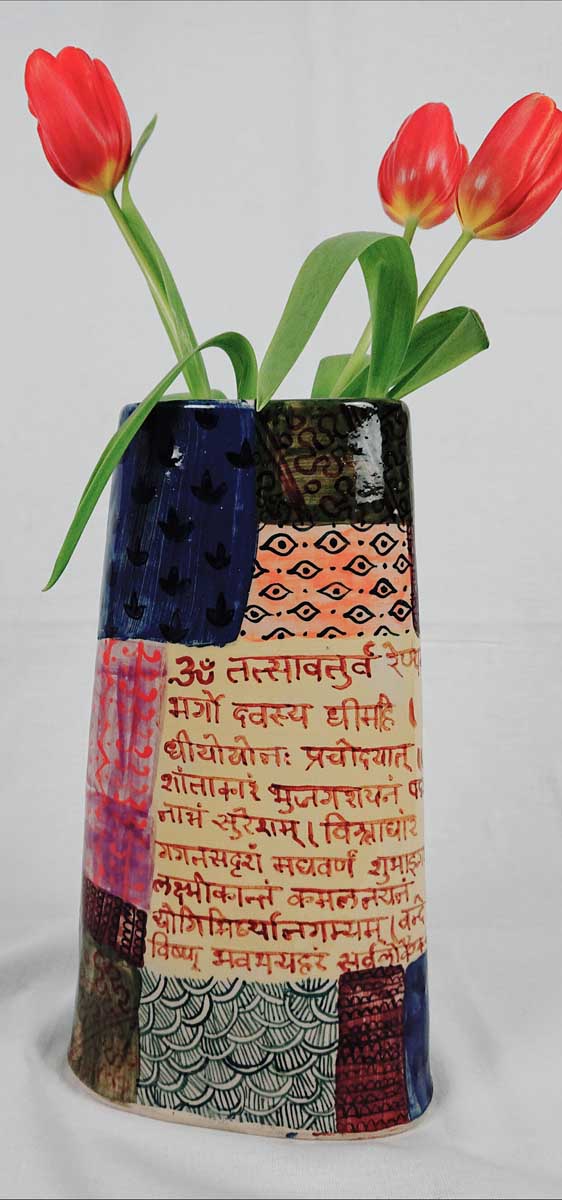 ॐ तत्सावतुर्व रेण्य
भर्गो दवस्य धीमहि ।
धीयोयोनः प्रचोदयात् ॥
शांताकारं भुजगशयनं पद्
नाभं सुरेशम् । विश्वाधारं
गगनसदृशं मघवर्णं शुभाङ्ग
लक्ष्मीकान्तं कमलनयनं
योगिमिर्ध्यानगम्यम् । वन्दे
विष्णु भवभयहरं सर्वलोकैक